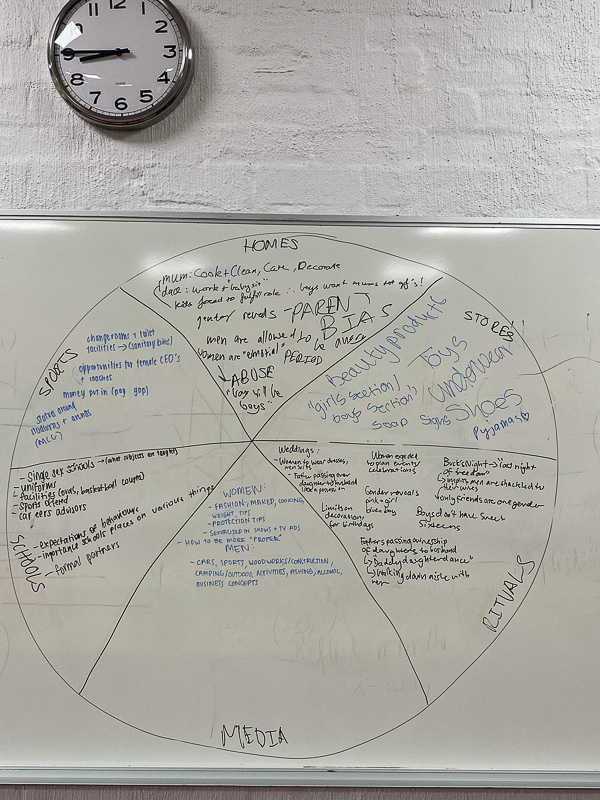 12
1
2
3
4
5
6
7
8
9
11
HOMES
mum: Cook + Clean, Care, Decorate
dad: work + "babysit"
kids forced to fulfill role ∴ boys want mums not gf's!
gender reveals - PARENT
BIAS
men are allowed to be angry
women are "emotional", PERIOD
↓ ABUSE
"boy will be
boys"
STORES
Beauty products
"girls section/
boys section"
Toys
Underwear
Soap
Signs
Shoes
Pyjamas ♡
SPORTS
changerooms + toilet
facilities → (sanitary bins)
opportunities for female CEO's
+ coaches
money put in (pay gap)
status around
SCHOOLS
- Single sex schools → (what subjects are taught)
- uniforms
- facilities (ovals, basketball courts)
- sports offered
- careers advisors
- expectations of behaviours
- importance schools place on various things
- formal partners
WOMEN:
- FASHION, MAKEUP, COOKING,
WEIGHT, TIPS
- PROTECTION TIPS
- SEXUALIZED IN SHOWS + TV ADS
- HOW TO BE MORE "PROPER"
MEN:
- CARS, SPORTS, WOODWORKS/CONSTRUCTION,
CAMPING/OUTDOOR ACTIVITIES, FISHING, ALCOHOL,
BUSINESS CONCEPTS
MEDIA
Weddings:
- Women to wear dresses,
men suits
- Father passing over
daughter to husband
like a
Limits on
decorations
for birthdays
Women expected
to plan events/
celebrations
Gender reveals
pink = girl
blue = boy
Fathers passing ownership
of daughters to husband
↳ Daddy daughter dance"
↳ Walking down aisle with
Buck's Night → "last night
of freedom"
↳ implies men are shackled to
their wives
↳ only friends are one gender
Boys don't have Sweet
Sixteens
RITUALS